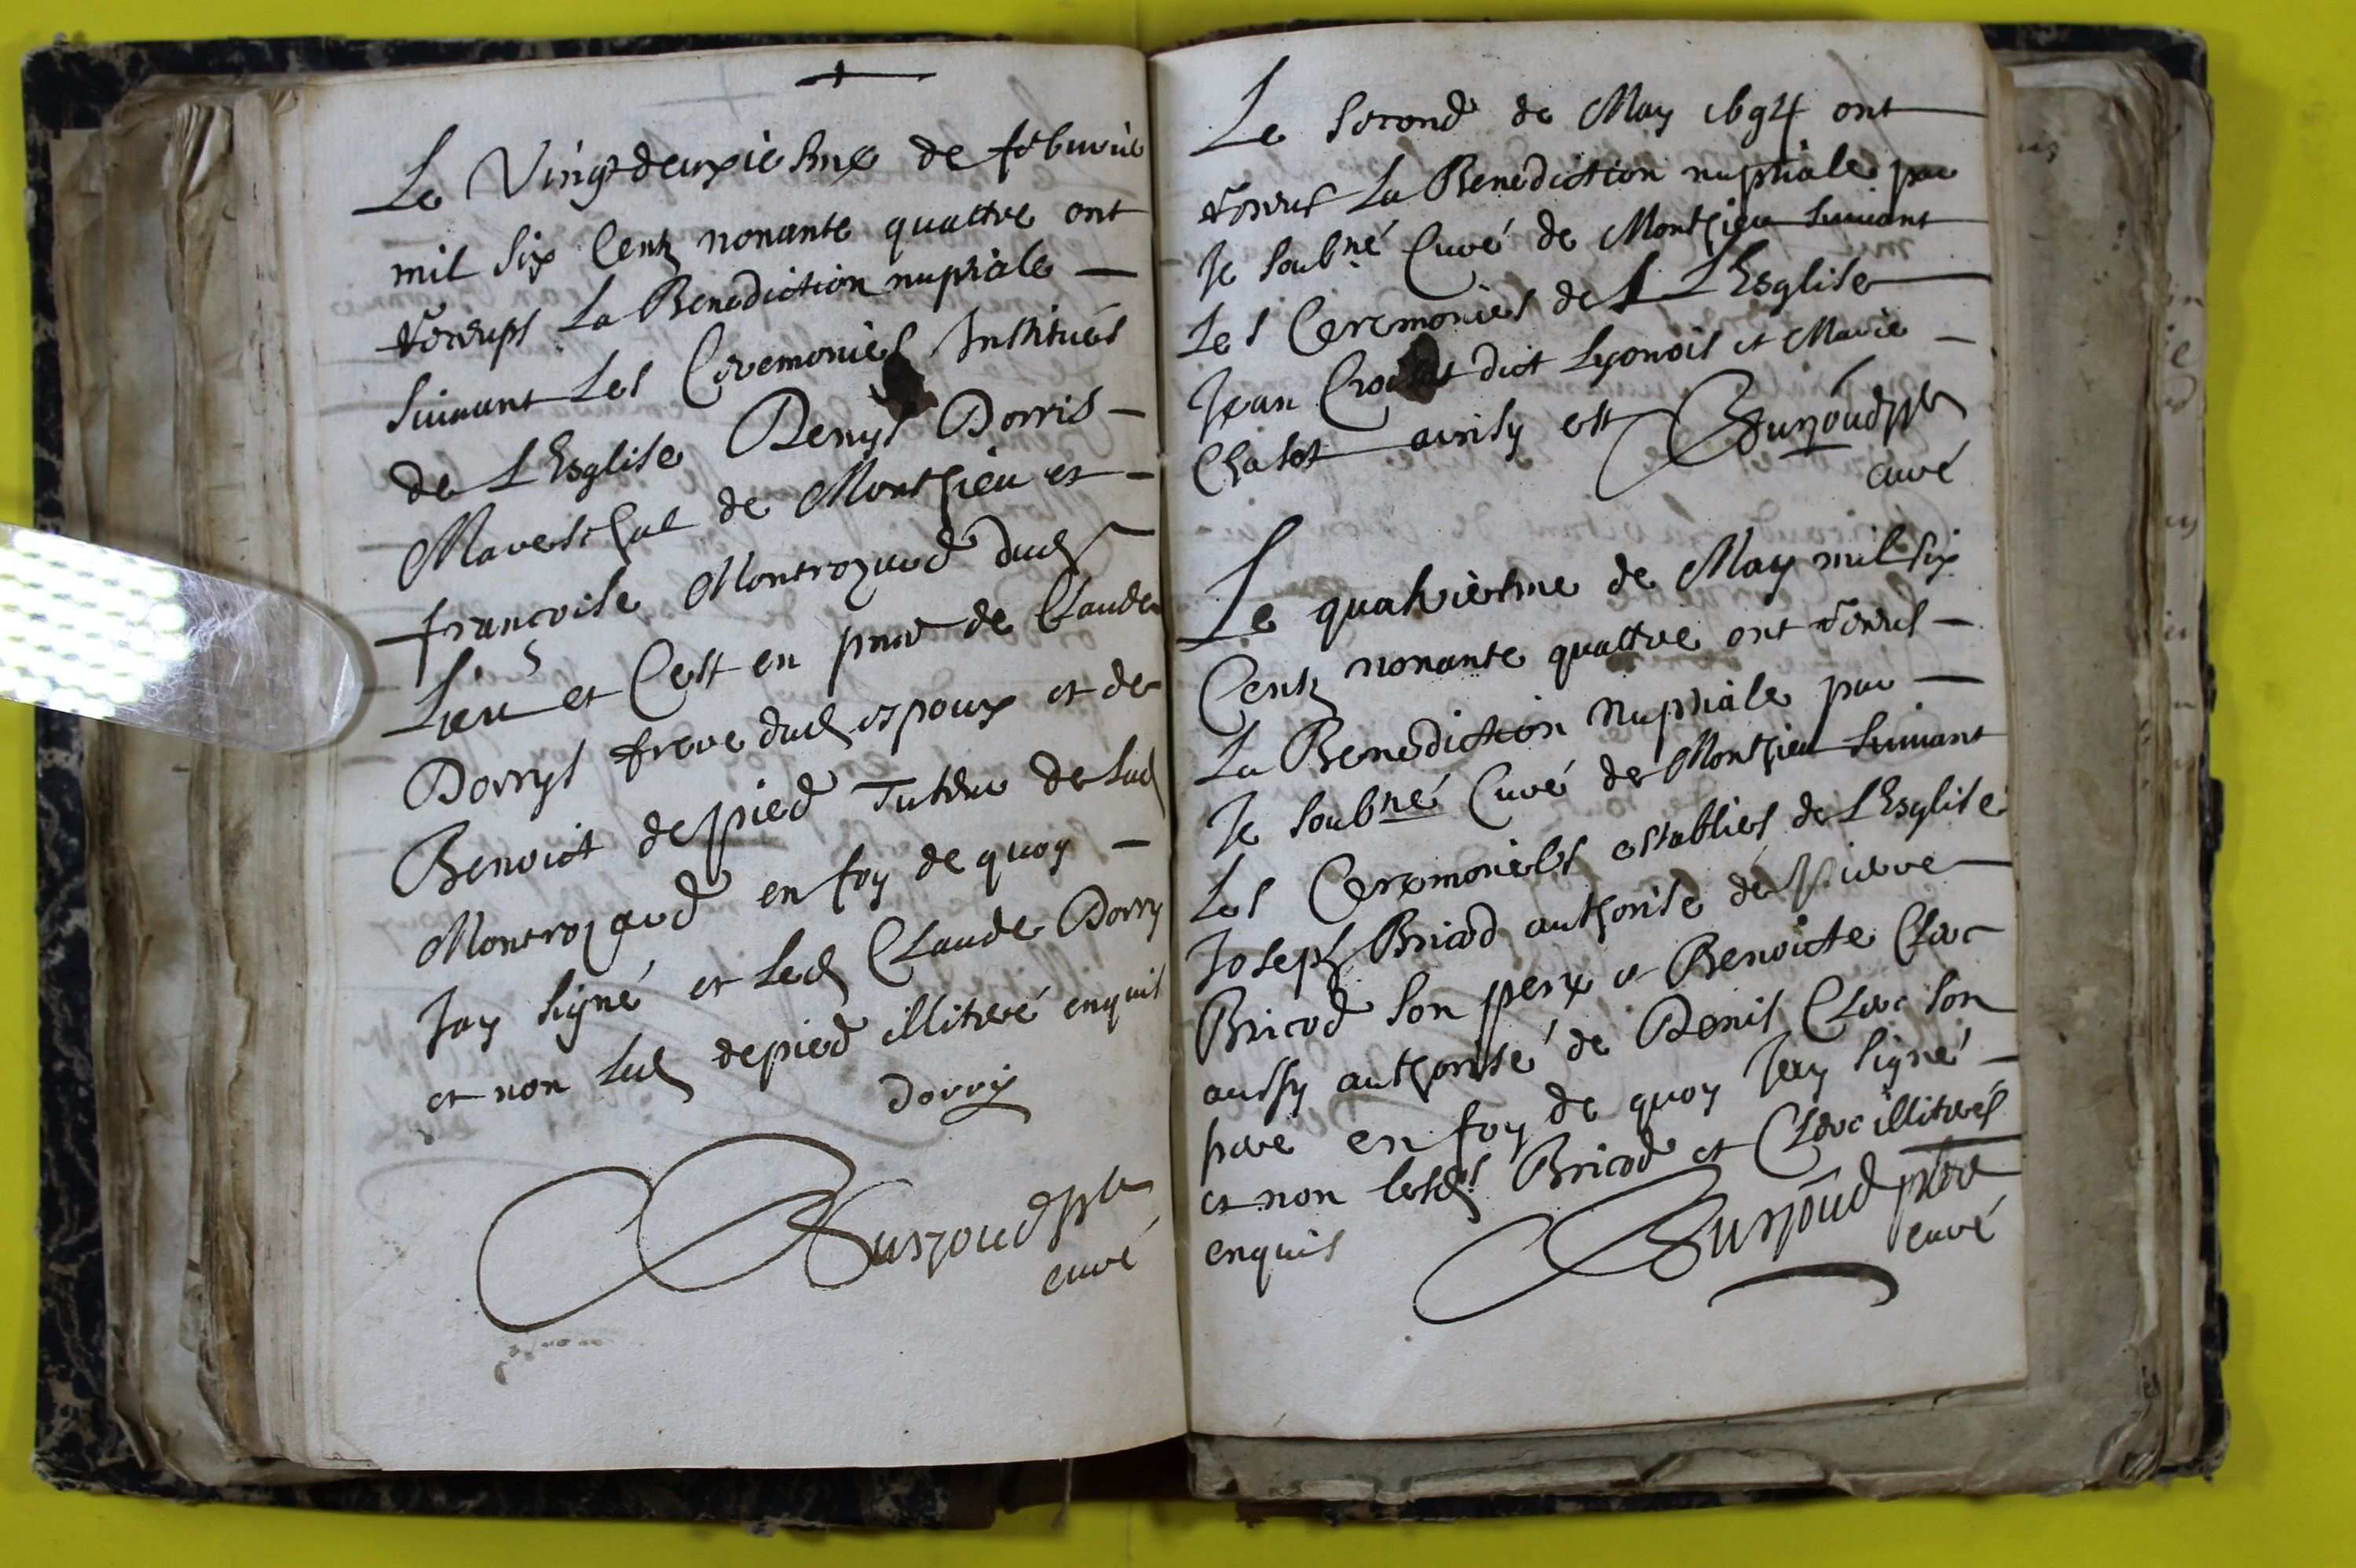 Le Vingtdeuxiesme de febvrie
mil Six Centz nonante quattre ont
receups La Benediction nuptiale
Suivant Les Ceremonies Instituées
de L Esglise Denys Dorris
Mareschal de Monthieu et
francoise Montrozard dud
Lieu et Cest en pnce de Claude
Dorrys frere dud espoux et de
Benoict depied Tuteur de lad
Montrozard en foy de quoy
Jay signé et Led Claude Dorry
et non Led depied illiteré enquis
Dorrix
Burjoud pbr
curé
Le Second de May 1694 ont
receus La Benediction nuptiale par
Je Soubné Curé de Monthieu Suivant
Les Ceremonies de L Esglise
Jean dict Lyonois et Marie
Chalot ainsy est Burjoud pbr
curé
Le quatriesme de May mil six
Centz nonante quattre ont receus
La Benediction Nuptiale par
Je Soubné Curé de Monthieu Suivant
Les Ceremonies establies de L Esglise
Joseph Bricod authorisé de Pierre
Bricod son pere et Benoicte Clerc
aussy authorisé de Denis Clerc son
pere en foy de quoy Jay signé
et non lesds Bricod et Clerc illiterés
enquis Burjoud pbre
curé